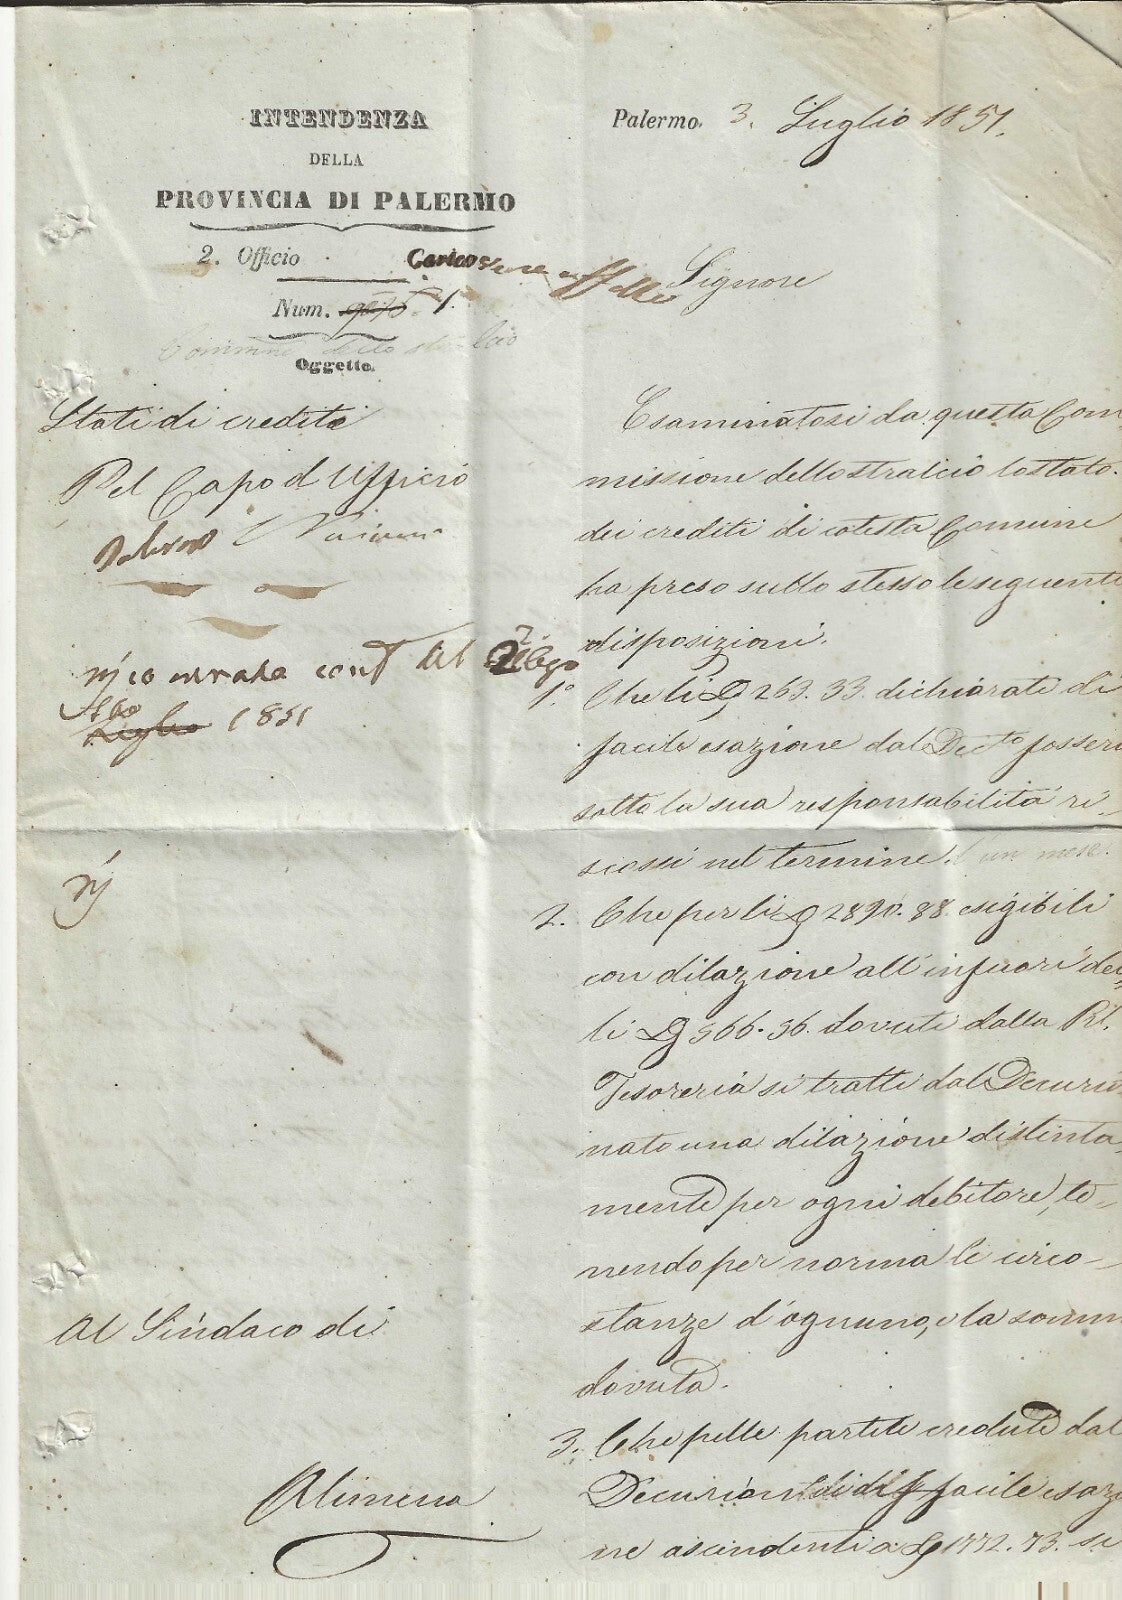 INTENDENZA
DELLA
PROVINCIA DI PALERMO
2. Officio
Carico
Num. 9875 1.
Commne dello stralcio
Oggetto.
Stati di credite
Pel Capo d'Ufficio
Palermo
1851
Al Sindaco di
Alimena
Palermo. 3. Luglio 1851.
Signore
Esaminatosi da questa Com
missione dello stralcio lo stato
dei crediti di cotesta Comune
ha preso sullo stesso le seguenti
disposizioni.
1° Che li D 263.33. dichiarati di
facile esazione dal Dectо fossero
sotto la sua responsabilità ri-
scossi nel termine d'un mese.
2. Che per li D 2890.88. esigibili
con dilazione all'infuori del-
li D 566.56. dovuti dalla Rl.
Tesoreria si tratti dal Decurio
nato una dilazione distinta
mente per ogni debitore, te-
nendo per norma le circo-
stanze d'ognuno, e la somm
dovuta.
3. Che pelle partite credute dal
Decurionato di facile esazi
ne ascendenti a D 1772.73. si